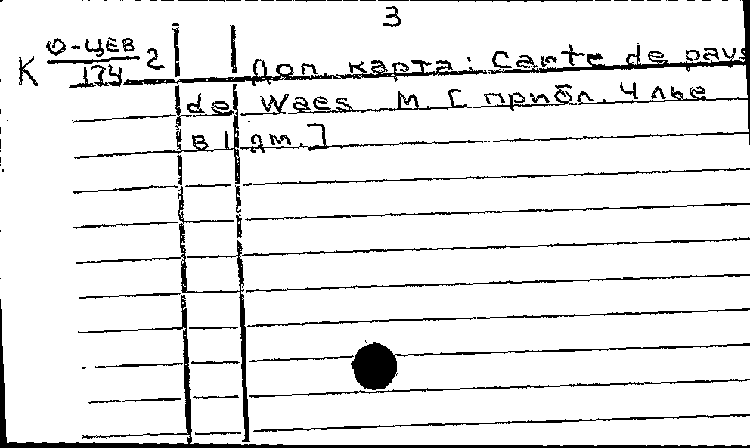 3
К О-ЦЕВ 2
174
Доп. карта: Carte de pays
de Waes М. [ прибл. 4 лье
в 1 дм.]